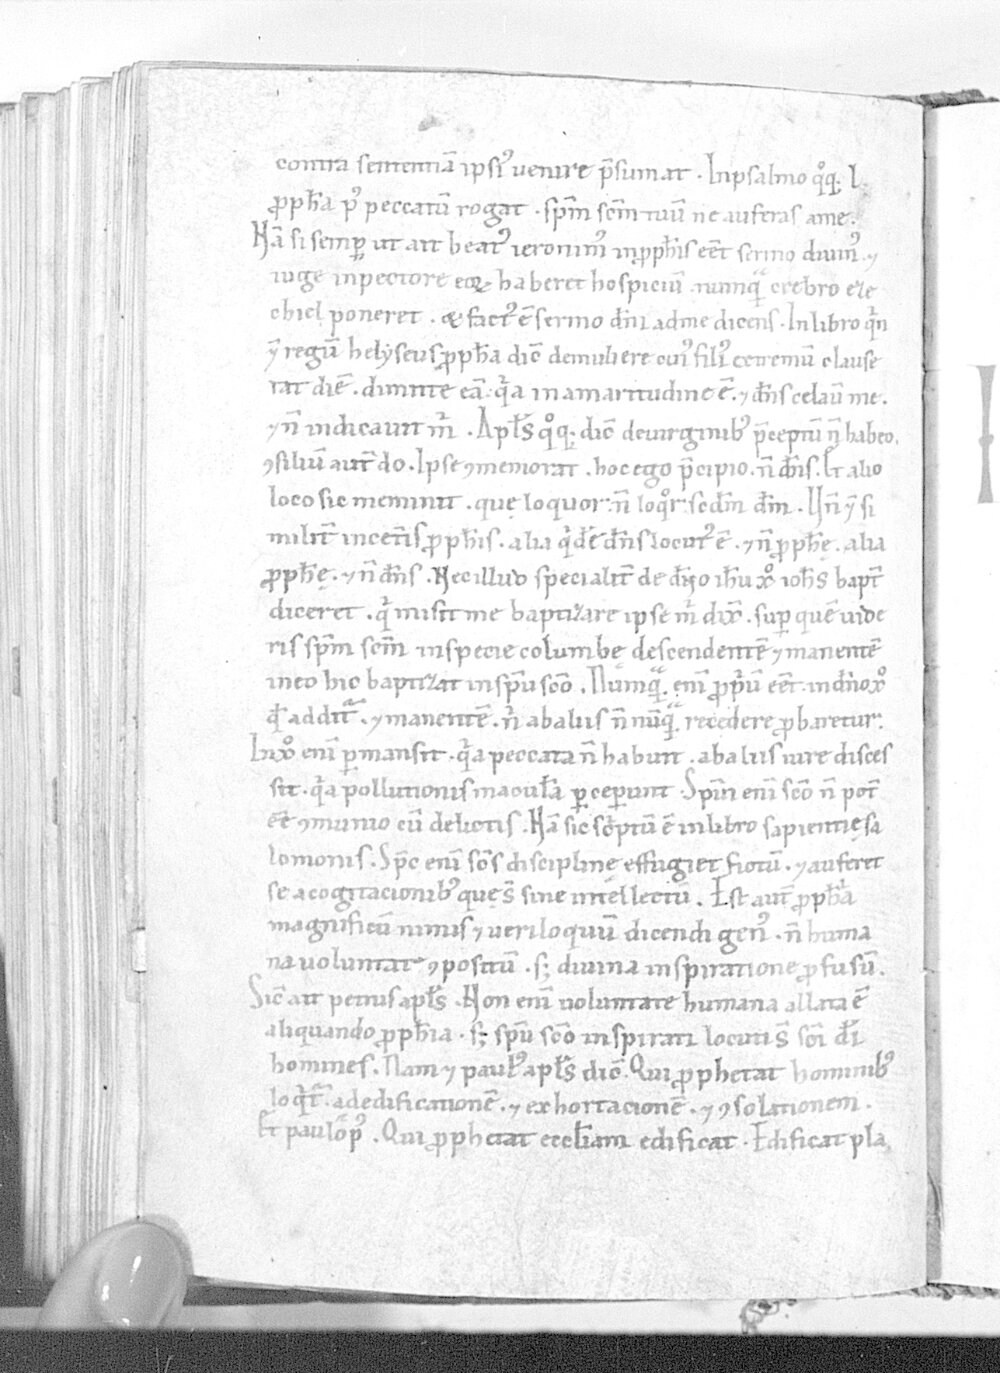 contra sententiā ipsiꝰ uenire p̄sumat . In psalmo qͦq; l
ꝓph̄a pꝰ peccatū rogat . sp̄m sc̄m tuū ne auferas a me .
Nā si semꝑ ut ait beatꝰ ieronimꝰ in ꝓph̄is eēt sermo diuinꝰ . ⁊
iuge in pectore eoꝝ haberet hospiciū . numqͣ; crebro eze
chiel poneret . & factꝰ ē sermo dn̄i ad me dicens . In libro qͥn
⁊̄ regū helyseus ꝓph̄a dic̄ de muliere cuiꝰ filiꝰ extremū clause
rat diē . dimitte eā . qͥa in amaritudine ē . ⁊ dn̄s celauit me .
⁊ n̄ indicauit m̄ . Apl̄s qͦq; dic̄ de uirginibꝰ p̄ceptū n̄ habeo .
ꝯsiliū aut̄ do . Ipse ꝯmemorat . hoc ego p̄cipio . n̄ dn̄s . Et alio
loco sic meminit . que loquor n̄ loqͦr scdm̄ dm̄ . Nn̄ ⁊̄ si
milit̄ in cet̄is ꝓph̄is . alia qͥdē dn̄s locutꝰ ē . ⁊ n̄ ꝓph̄ę . alia
ꝓph̄ę . ⁊ n̄ dn̄s . Nec illud specialit̄ de dn̄o ih̄u xͦ ioh̄s bapt̄
diceret . qͥ misit me baptizare ipse m̄ dix̄ . suꝑ quē uide
ris sp̄m sc̄m in specie columbę descendentē ⁊ manentē
in eo hic baptizat in sp̄u sc̄o . Numqͣ; enī ꝓpͥū eēt in dn̄o xͦ
qd̄ addit̄ . ⁊ manentē . n̄ ab aliis n̄ nūqͣ; recedere ꝓbaretur .
In xͦ enī ꝑmansit . qͥa peccata n̄ habuit . ab aliis iure disces
sit . qͥa pollutionis macul̄a ꝑceperunt . Sp̄m enī sc̄o n̄ pot̄
eē ꝯmunio cū delictis . Nā sic sc̄ptū ē in libro sapientię sa
lomonis . Sp̄c enī sc̄s disciplinę effugiet fictū . ⁊ auferet
se a cogitacionibꝰ quę s̄ sine intellectū . Est aut̄ ꝓph̄ia
magnificū nimis ⁊ ueriloquū dicendi genꝰ . n̄ huma
na uoluntate ꝯpositū . s; diuina inspiratione ꝓfusū .
Sic̄ ait petrus apl̄s . Non enī uoluntate humana allata ē
aliquando ꝓph̄ia . s; sp̄u sc̄o inspirati locuti s̄ sc̄i dī
homines . Nam ⁊ paulꝰ apl̄s dic̄ . Qui ꝓphetat hominibꝰ
loqͥt̄ . ad edificationē . ⁊ exhortacionē . ⁊ ꝯsolationem .
Et paulo pꝰ . Qui ꝓphetat eccl̄iam edificat . Edificat pla